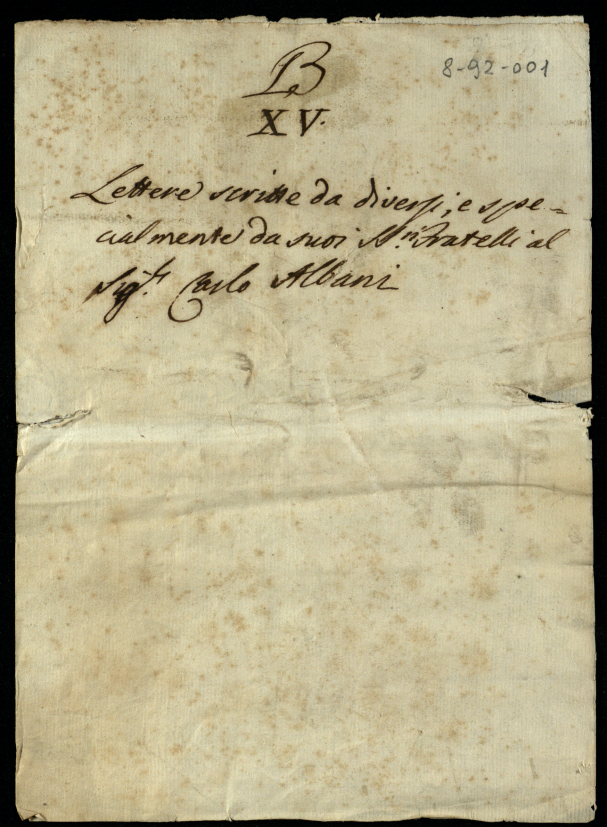 B
8-92-001
XV.
Lettere scritte da diversi, e spe=
cialmente da suoi Sri. Fratelli al
Sigr. Carlo Albani